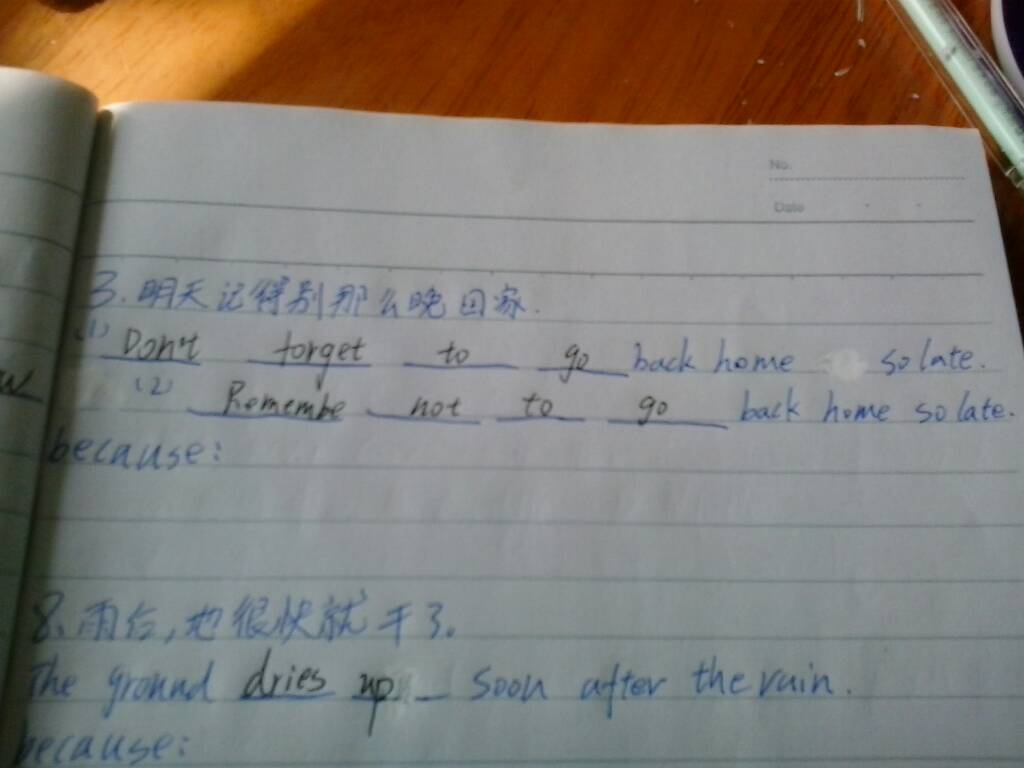 No.
Date
3.明天记得别那么晚回家.
(1) Don't forget to go back home so late.
(2) Remembe not to go back home so late.
because:
8.雨后,地很快就干了.
The ground dries up soon after the rain.
because: